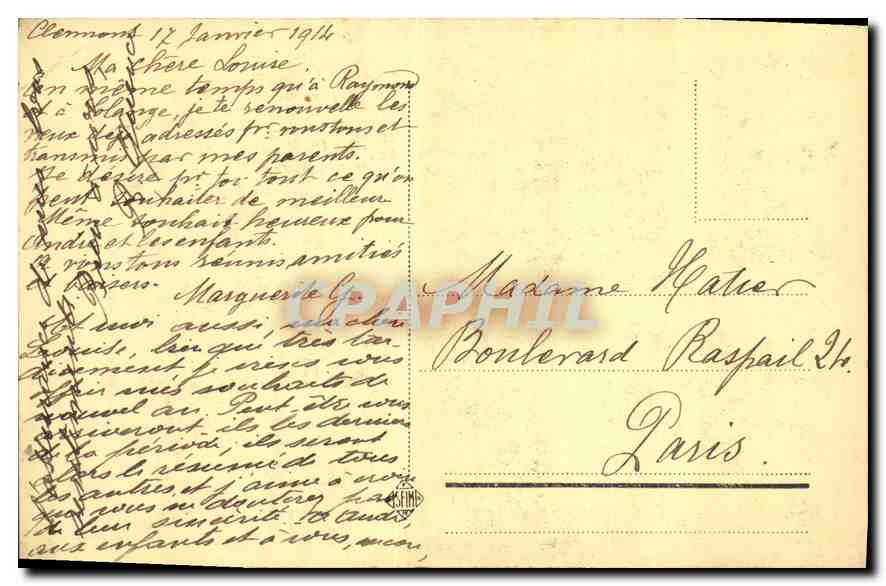 Clermont 17 Janvier 1914
Ma chère Louise.
En même temps qu'à Raymond
et à Solange, je te renouvelle les
vœux déjà adressés pr. vous tous et
transmis par mes parents.
Je désire pr toi tout ce qu'on
peut souhaiter de meilleur
Même souhait heureux pour
André et les enfants.
A vous tous réunis amitiés
& baisers.
Marguerite G.
Et moi aussi, ma chère
Louise, bien que très tar-
divement je viens vous
offrir mes souhaits de
nouvel an. Peut être vous
arriveront ils les derniers
de la période, ils seront
alors le résumé de tous
les autres et j'aime à croire
que vous ne douterez pas
de leur sincérité. A André,
aux enfants et à vous, encore,
Madame Hatier
Boulevard Raspail 24.
Paris.
CPAPHIL